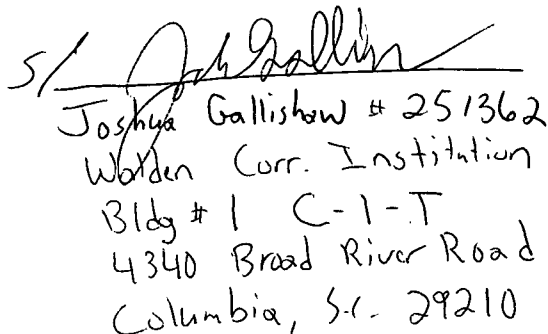 s/ Josh Gallishaw
Joshua Gallishaw # 251362
Walden Corr. Institution
Bldg # 1 C-1-T
4340 Broad River Road
Columbia, S.C. 29210